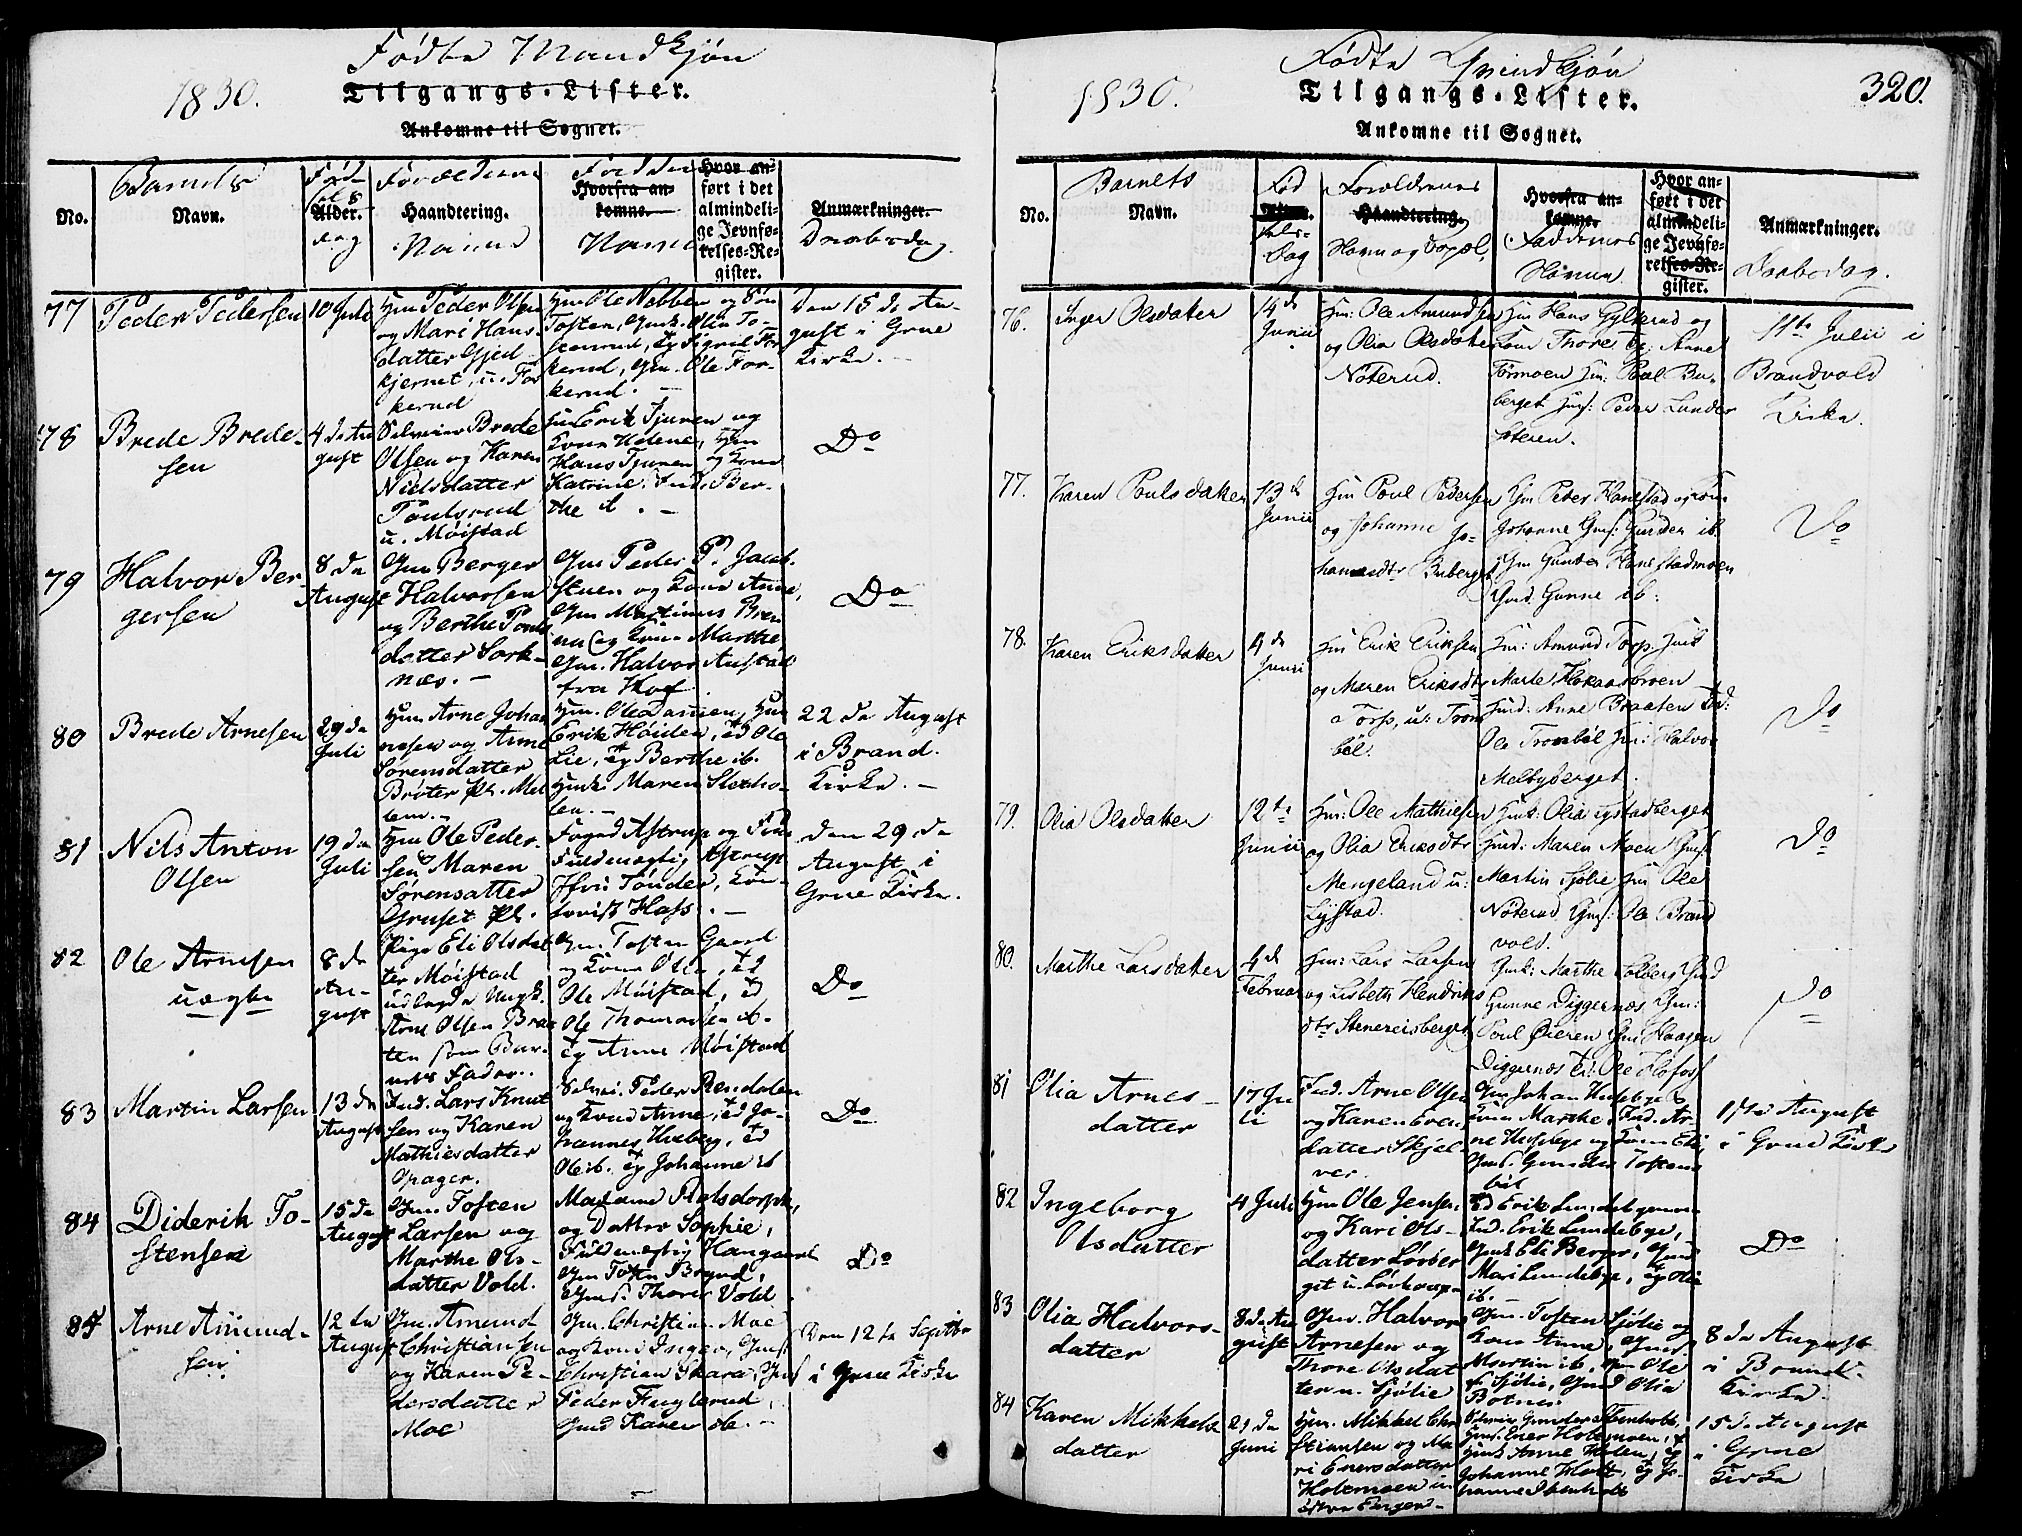 Fødte Mandkjøn
1830.
Tilgangs-Lister.
Ankomne til Sognet.
Barnets
No.
Navn.
Føds
els
Alder.
dag
Forældrenes
Haandtering.
Navne
Faddernes
Hvorfra an-
komne.
Navne
Hvor an-
ført i det
almindeli-
ge Jevnfø-
relses-Re-
gister.
Anmærkninger.
Daabsdag.
77
Peder Pedersen
10 Juli
Hm Peder Olsen
og Mari Hans
datter Gjed
kjernet, u. For
kerud
Hm Ole Nebben og Søn
Tosten, Gmk. Olia To-
stenrud, Eg Sigrid For
kerud, Gm. Ole For-
kerud. -
Den 15 de Au-
gust i Grue
Kirke. -
78
Brede Brede-
sen
4 de Au
gust
Selveier Brede
Olsen og Karen
Nielsdatter
Poulsrud
u. Møistad
Hm Erik Tjuren og
Kone Helene, Hm
Hans Tjuren og Kone
Katrine. Ind. Ber-
the ib. -
Do
79
Halvor Ber-
gersen
8 de
August
Gm Berger
Halvorsen
og Berthe Pouls
datter Sork-
næs. -
Gm Peder P. Jacob.
stuen og Kone Anne,
Gm Martinus Bren
na og Kone Marthe
Gm. Halvor Austad
fra Hof.
Do
80
Brede Arnesen
29 de
Juli
Hm Arne Johan
nesen og Anne
Sørensdatter
Brøter Pl. Mel
lem. -
Hm. Ole Dammen, Hm
Erik Høiden, Ed Ole
Lie, Eg Berthe ib.
Hmk. Maren Stenho-
len. -
22 de August
i Brand.
Kirke. -
81
Nils Anton
Olsen
19 de
Juli
Hm Ole Peder-
sen Maren
Sørensatter
Gruset Pl.
Foged Astrup og Frue
Fuldmægtig Astrup
Jfru Tønder, Kon-
torist Hass. -
Den 29 de
August i
Grue Kirke.
82
Ole Arnesen
uægte
8 de
Au-
gust
Pige Eli Olsdat
ter Møistad
udlagde Ungk.
Arne Olsen Bra
ten som Bar-
nets Fader.
Gm. Tosten Gaard
og Kone Olia, Ed
Ole Møistad, Ed
Ole Thomassen ib.
Eg Anne Møistad
Do
83
Martin Larsen
13 de
August
Ind. Lars Knut
sen og Karen
Mathiesdatter
Opager.
Selvei. Peder Rendalen
og Kone Anne, Ed Jo-
hannes Huberg, Ed
Ole ib. Eg Johanne ib
Do
84
Diderik To-
stensen
15 de
August
Gm. Tosten
Larsen og
Marthe Ols-
datter Vold.
Madame Ralsdorph,
og Datter Sophie,
Fuldmægtig Haugaard
Gm Tosten Brynd,
Gmd. Thore Vold.
Do
85
Arne Amund-
sen
12 de
August
Gm. Amund
Christiansen
og Karen Pe-
dersdatter
Moe
Gm. Christian Moe
og Kone Inger, Gmd
Christian Skara, Gmd
Peder Fuglerud,
Gmd Karen ib. -
Den 12 te Septbr
i Grue Kirke
Fødte Qvindkjøn
1830.
Tilgangs-Lister.
Ankomne til Sognet.
320.
Barnets
No.
Navn.
Fød
Alder.
sels-
Dag
Forældrenes
Haandtering.
Navn og Bopæl.
Hvorfra an-
komne.
Faddernes
Navne
Hvor an-
ført i det
almindeli-
ge Jevnfø-
relses-Re-
gister.
Anmærkninger.
Daabsdag.
76.
Inger Olsdatter
14 de
Junii
Hm: Ole Amundsen
og Olia Olsdatter
Noterud.
Hm Hans Gylterud og
Kone Thore Eg: Anne
Tormoen Hm: Poul Bu-
berget Hmf: Peder Lunder
sæteren.
11te Julii i
Brandvold
Kirke.
77.
Karen Poulsdatter
13 de
Junii
Hm Poul Pedersen
og Johanne Jo-
hannesdtr Buberget
Hm Peder Hanestad og Kone
Johanne Gmf: Gunder ib.
Gm Gunder Hanestadmoen
Gmd. Gunne ib:
Do
78.
Karen Eriksdatter
4 de
Junii
Hm Erik Eriksen
og Maren Eriksdtr
Torp, u: Trom
bøl.
Hm: Amund Torp. Hmk
Marte Hokaasbroen
Hmd: Anne Braaten Ed:
Ole Trombøl Hm: Halvor
Melbyberget.
Do
79.
Olia Olsdatter
12te
Junii
Hm: Ole Mathiesen
og Olia Eriksdtr
Mengeland u:
Lystad.
Hmk: Olia Lystadberget
Hmd: Maren Moen Gmf
Martin Sjølie Hm Ole
Noterud Gmf: Ole Brand
vold.
Do
80.
Marthe Larsdatter
4 de
Februar
Hm: Lars Larsen
og Lisbeth Hendriks
dtr Stenereisberget
Gmk: Marthe Solberg Gmd
Gunne Diggernæs Gm:
Poul Øieren Gm Haagen
Diggernæs Ed: Ole Hofoss
Do
81
Olia Arnes-
datter
17 Ju
li
Ind. Arne Olsen
og Karen Evens
datter Skjel-
ver
Gm Johan Husebye og
Kone Marthe Ind. Ar-
ne Husebye og Kone Eli,
Gmd. Gunder Tostens
bøl
1ste August
i Grue Kirke
82
Ingeborg
Olsdatter
4 Juli
Hm Ole Jensen
og Kari Ols-
datter Lørber
git u. Løvhaug-
Ed Erik Lundebyemoen
Ind. Erik Lundebye,
Gmk Eli Berger, Gmd
Mari Lundebye, Eg Olia
ib.
Do
83
Olia Halvors-
datter
8 de Au
gust
Gm. Halvor
Arnesen og
Thore Olsdat
ter u. Sjølie
Gm. Tosten Sjølie og
Kone Anne, Gmd
Martin ib, Gm Ole
Sjølie, Gmd Olia
Botner.
8 de August
i Brand.
Kirke.
84
Karen Mikkels
datter
21 de
Juni
Hm. Mikkel Chr
stiansen og Ma
ri Enersdatter
Holtmoen u.
Selveier Gunder Stenholt,
Hmd. Ener Holtmoen,
Hmk Anne Holen, Eg
Johanne Holt, Eg Jo-
hanne Stenholt
15 de August
i Grue
Kirke